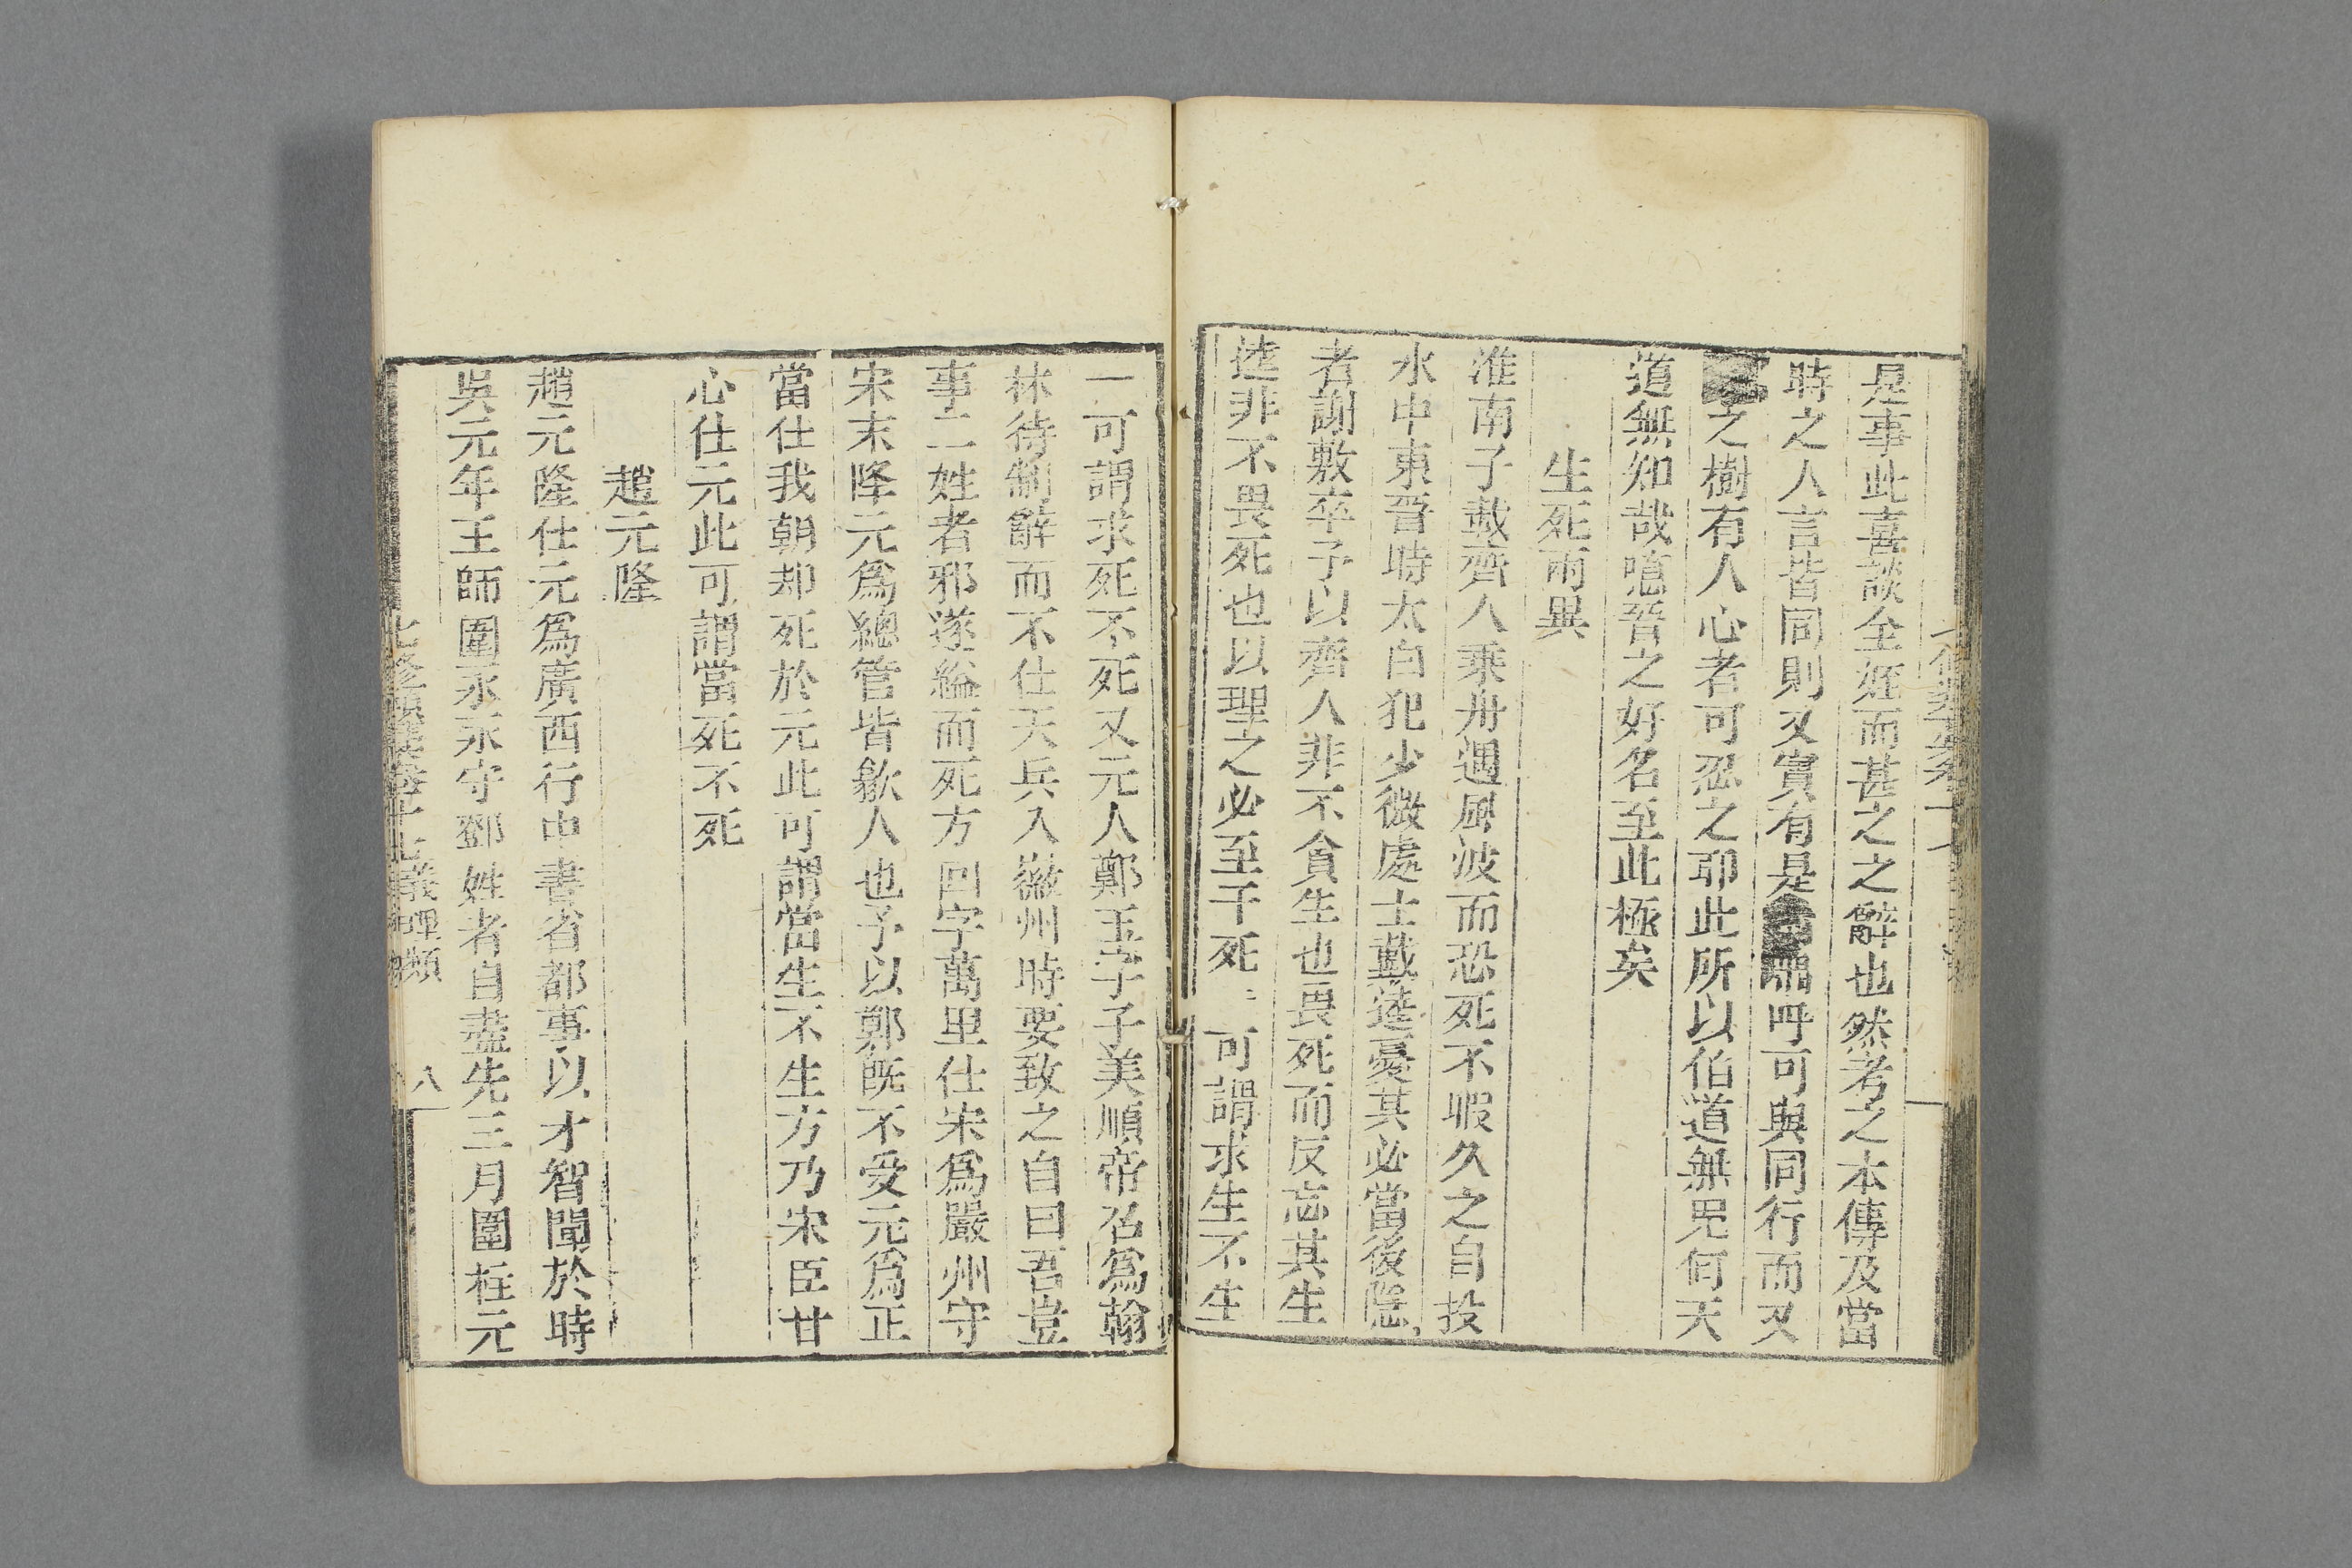 是事此喜談全姪而甚之之辭也然考之本傳及當
時之人言皆同則又實有是嗚呼可與同行而又
之樹有人心者可忍之耶此所以伯道無兒何天
道無知哉噫晉之好名至此極矣
生死兩異
淮南子載齊人乘舟遇風波而恐死不暇久之自投
水中東晉時太白犯少微處士戴逵憂其必當後隱
者謝敷卒予以齊人非不貪生也畏死而反忘其生
逵非不畏死也以理之必至于死可謂求生不生
一可謂求死不死又元人鄭玉字子美順帝召爲翰
林待制辭而不仕天兵入徽州時要致之自曰吾豈
事二姓者邪遂縊而死方回字萬里仕宋爲嚴州守
宋末降元爲總管皆歙人也予以鄭旣不受元爲正
當仕我朝却死於元此可謂當生不生方乃宋臣甘
心仕元此可謂當死不死
趙元隆
趙元隆仕元爲廣西行中書省都事以才智聞於時
吳元年王師圍永永守鄧姓者自盡先三月圍桂元
七修類稾卷十七義理類
八